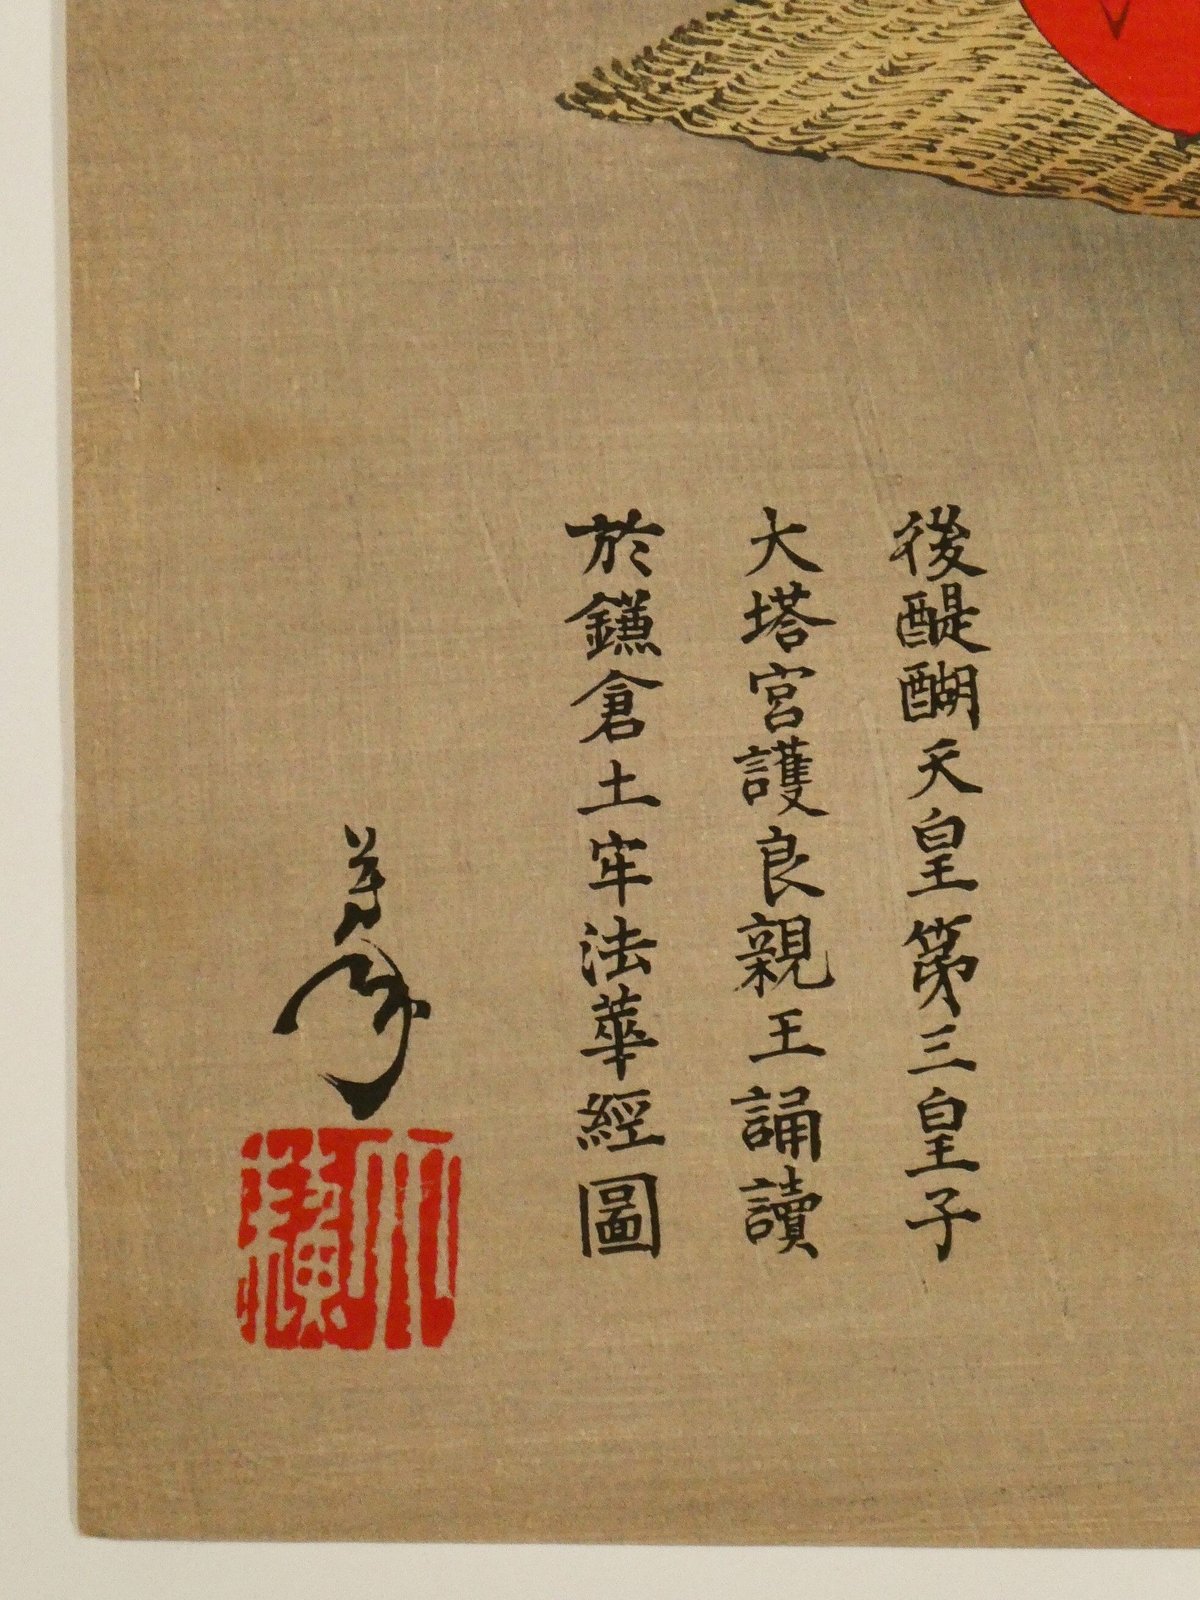 後醍醐天皇第三皇子
大塔宮護良親王誦讀
於鎌倉土牢法華經圖
芳年